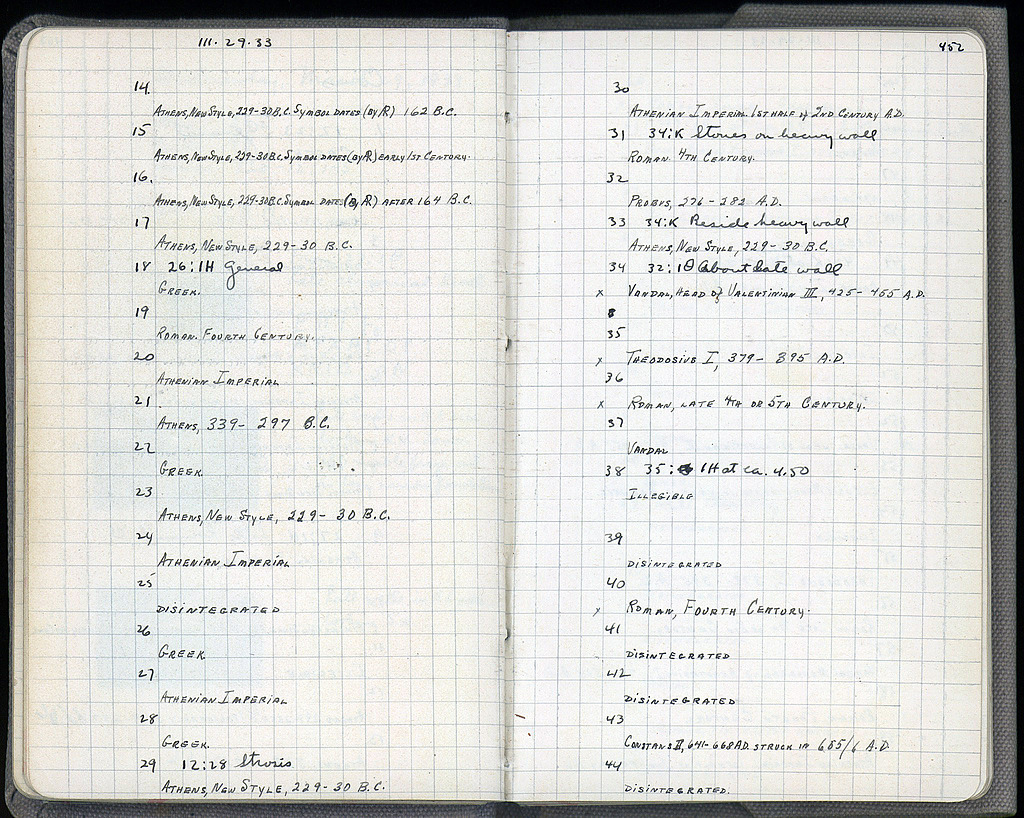 III · 29 · 33
14.
ATHENS, NEW STYLE, 229-30 B.C. SYMBOL DATES (BY Æ) 162 B.C.
15
ATHENS, NEW STYLE, 229-30 B.C. SYMBOL DATES (BY Æ) EARLY 1ST CENTURY.
16.
ATHENS, NEW STYLE, 229-30 B.C. SYMBOL DATES (BY Æ) AFTER 164 B.C.
17
ATHENS, NEW STYLE, 229-30 B.C.
18 26:IH General
GREEK.
19
ROMAN. FOURTH CENTURY.
20
ATHENIAN IMPERIAL
21
ATHENS, 339- 297 B.C.
22
GREEK
23
ATHENS, NEW STYLE, 229- 30 B.C.
24
ATHENIAN IMPERIAL
25
DISINTEGRATED
26
GREEK
27
ATHENIAN IMPERIAL
28
GREEK.
29 12:28 Strosis
ATHENS, NEW STYLE, 229-30 B.C.
452
30
ATHENIAN IMPERIAL 1ST HALF of 2ND CENTURY A.D.
31 34:K Stones on heavy wall
ROMAN. 4TH CENTURY.
32
PROBUS, 276 - 282 A.D.
33 34:K Beside heavy wall
ATHENS, NEW STYLE, 229-30 B.C.
34 32:1Θ About late wall
x VANDAL, HEAD of VALENTINIAN III, 425- 455 A.D.
35
x THEODOSIUS I, 379- 395 A.D.
36
x ROMAN, LATE 4TH OR 5TH CENTURY.
37
VANDAL
38 35: IH at ca. 4.50
ILLEGIBLE
39
DISINTEGRATED
40
x ROMAN, FOURTH CENTURY.
41
DISINTEGRATED
42
DISINTEGRATED
43
CONSTANS II, 641-668 A.D. STRUCK IN 655/6 A.D.
44
DISINTEGRATED.